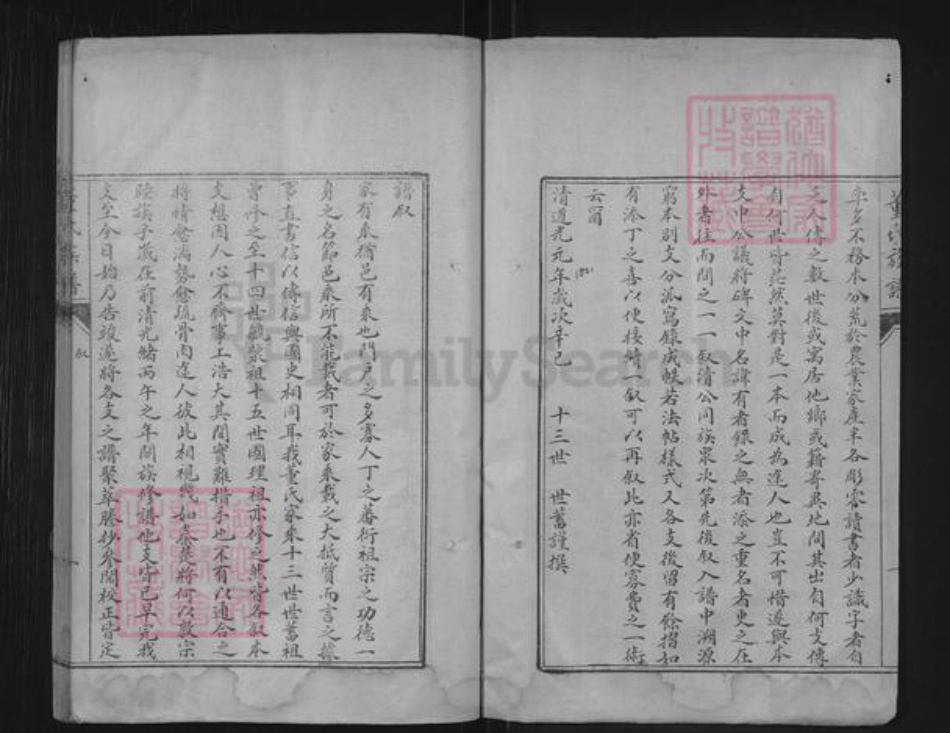 董氏族譜
率多不務本分荒於農業家產半各彫零讀書者少識字者自
三人傳之數世後或寓居他鄉或籍寄異地問其出自何支傳
自何世皆茫然莫對是一本而成為途人也豈不可惜遂與本
支中公議將碑文中名諱有者錄之無者添之重名者更之在
外者往而問之一一叙清公同族眾次第先後叙入譜中溯源
窮本別支分派寫錄成帙若法帖樣式又各支後留有餘摺如
有添丁之喜以便接續一叙可以再叙此亦省便寡費之一術
云爾
清道光元年歲次辛巳 十三世 世蓄謹撰
1821
譜叙
家有乘猶邑有乘也門戶之多寡人丁之蕃衍祖宗之功德一
身之名節邑乘所不能載者可於家乘載之大抵質而言之據
事直書信以傳信與國史相同耳我董氏家乘十三世世蓄祖
曾修之至十四世毓繁祖十五世國理祖亦修之然皆各叙本
支想因人心不齊事工浩大其間實難措手也不有以通合之
將情愈漓勢愈疏骨肉途人彼此相視幾如秦越將何以敦宗
睦族乎歲在前清光緒丙午之年闔族修譜他支皆已早完我
支至今日始乃告竣遂將各支之譜聚萃謄抄參閱校正皆定
董氏族譜
叙
FamilySearch